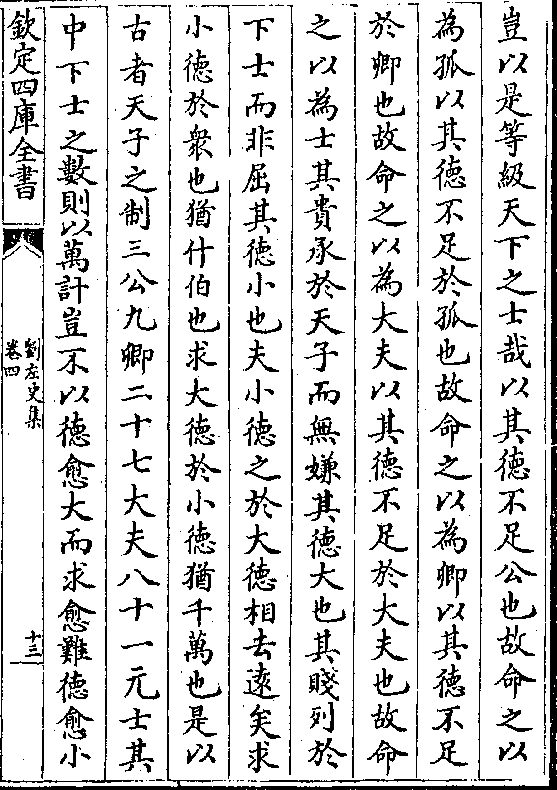 豈以是等級天下之士哉以其德不足公也故命之以
為孤以其德不足於孤也故命之以為卿以其德不足
於卿也故命之以為大夫以其德不足於大夫也故命
之以為士其貴承於天子而無嫌其德大也其賤列於
下士而非屈其德小也夫小德之於大德相去遠矣求
小德於衆也猶什伯也求大德於小德猶千萬也是以
古者天子之制三公九卿二十七大夫八十一元士其
中下士之數則以萬計豈不以德愈大而求愈難德愈小
欽定四庫全書
劉左史集
卷四
十三